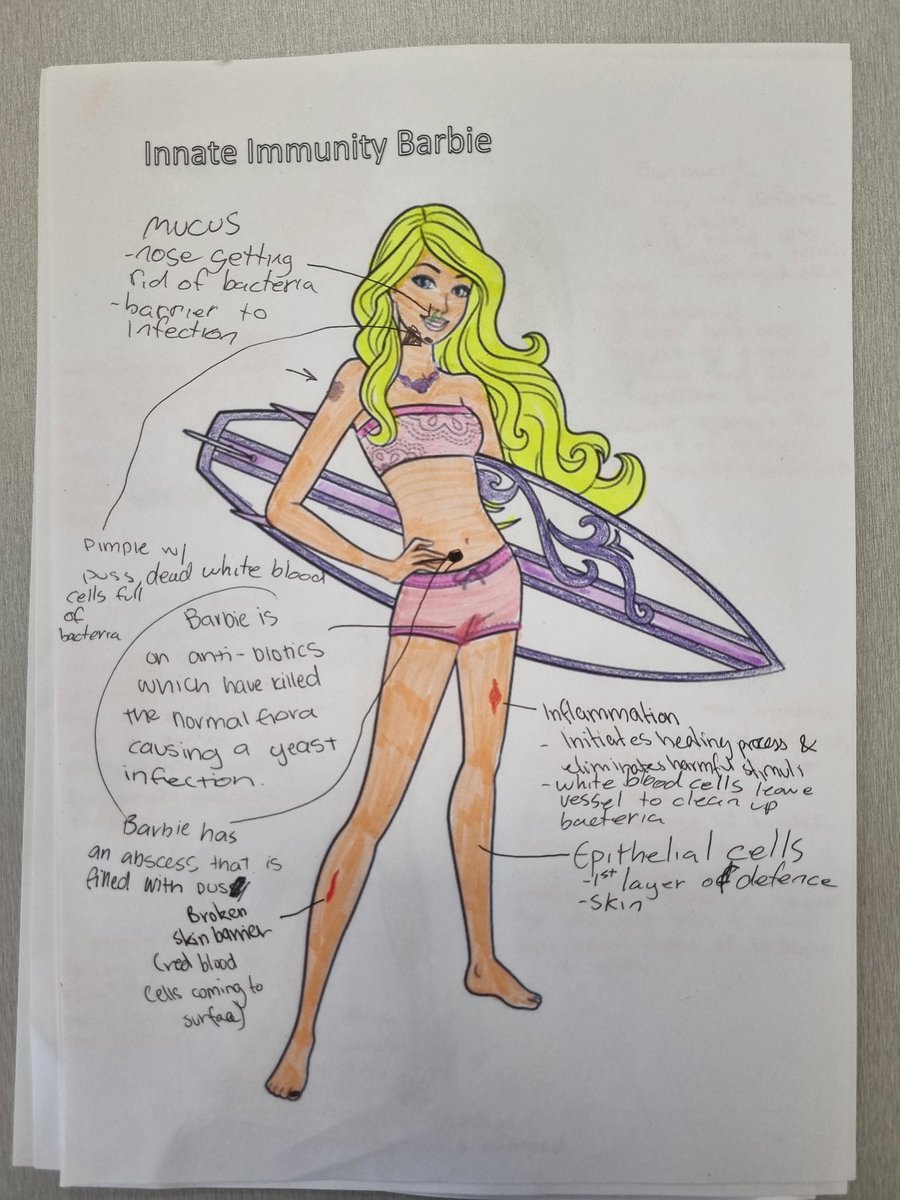 Innate Immunity Barbie
Mucus
-nose getting
rid of bacteria
-barrier to
infection
Pimple w/
puss, dead white blood
cells full
of
bacteria
Barbie is
on anti-biotics
which have killed
the normal flora
causing a yeast
infection.
Barbie has
an abscess that is
filled with pus
Broken
skin barrier
(red blood
cells coming to
surface)
Inflammation
- Initiates healing process &
eliminates harmful stimuli
- white blood cells leave
vessel to clean up
bacteria
Epithelial cells
-1st layer of defence
-skin